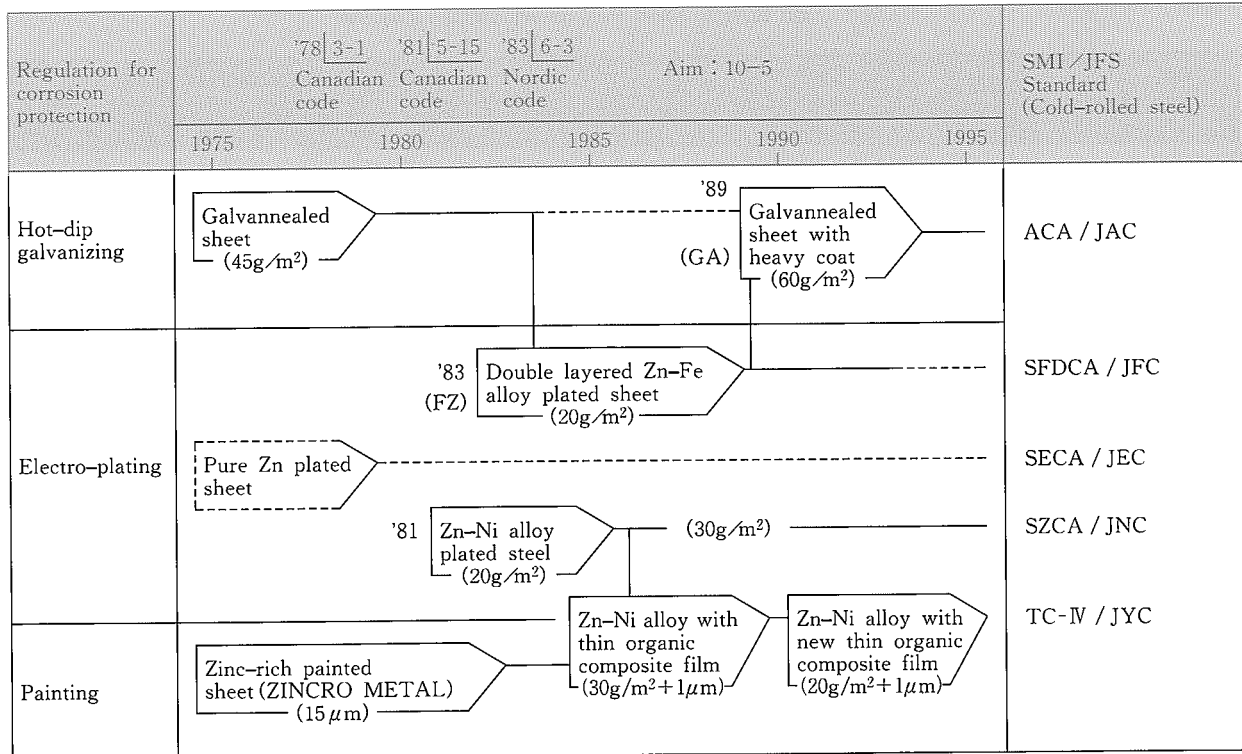 Regulation for
corrosion
protection
'78 3-1
Canadian
code
'81 5-15
Canadian
code
'83 6-3
Nordic
code
Aim : 10-5
SMI/JFS
Standard
(Cold-rolled steel)
1975 1980 1985 1990 1995
Hot-dip
galvanizing
Galvannealed
sheet
(45g/m²)
'89
(GA)
Galvannealed
sheet with
heavy coat
(60g/m²)
ACA / JAC
Electro-plating
'83
(FZ)
Double layered Zn-Fe
alloy plated sheet
(20g/m²)
SFDCA / JFC
Pure Zn plated
sheet
SECA / JEC
'81
Zn-Ni alloy
plated steel
(20g/m²)
(30g/m²)
SZCA / JNC
Painting
Zinc-rich painted
sheet (ZINCRO METAL)
(15μm)
Zn-Ni alloy with
thin organic
composite film
(30g/m²+1μm)
Zn-Ni alloy with
new thin organic
composite film
(20g/m²+1μm)
TC-Ⅳ / JYC